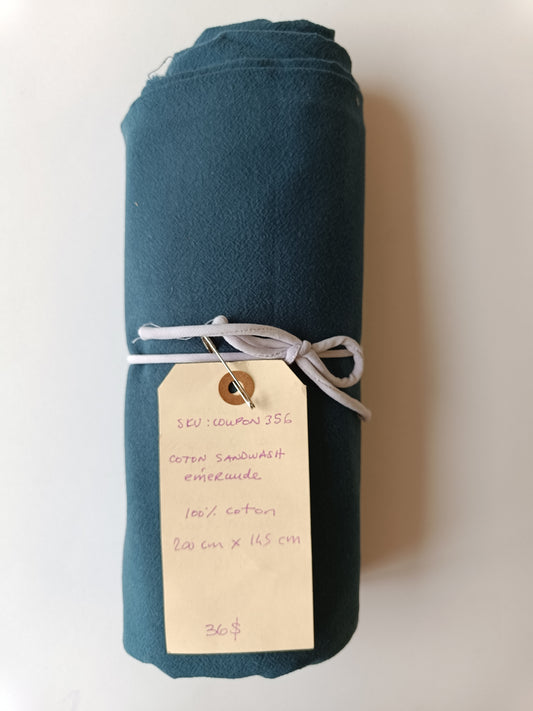 SKU : COUPON 356
COTON SANDWASH
émeraude
100% coton
200 cm x 145 cm
36$